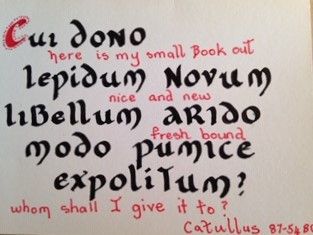 Cui dono
here is my small Book out
lepidum novum
nice and new
libellum arido
fresh bound
modo pumice
expolitum?
whom shall I give it to?
Catullus 87-54 B